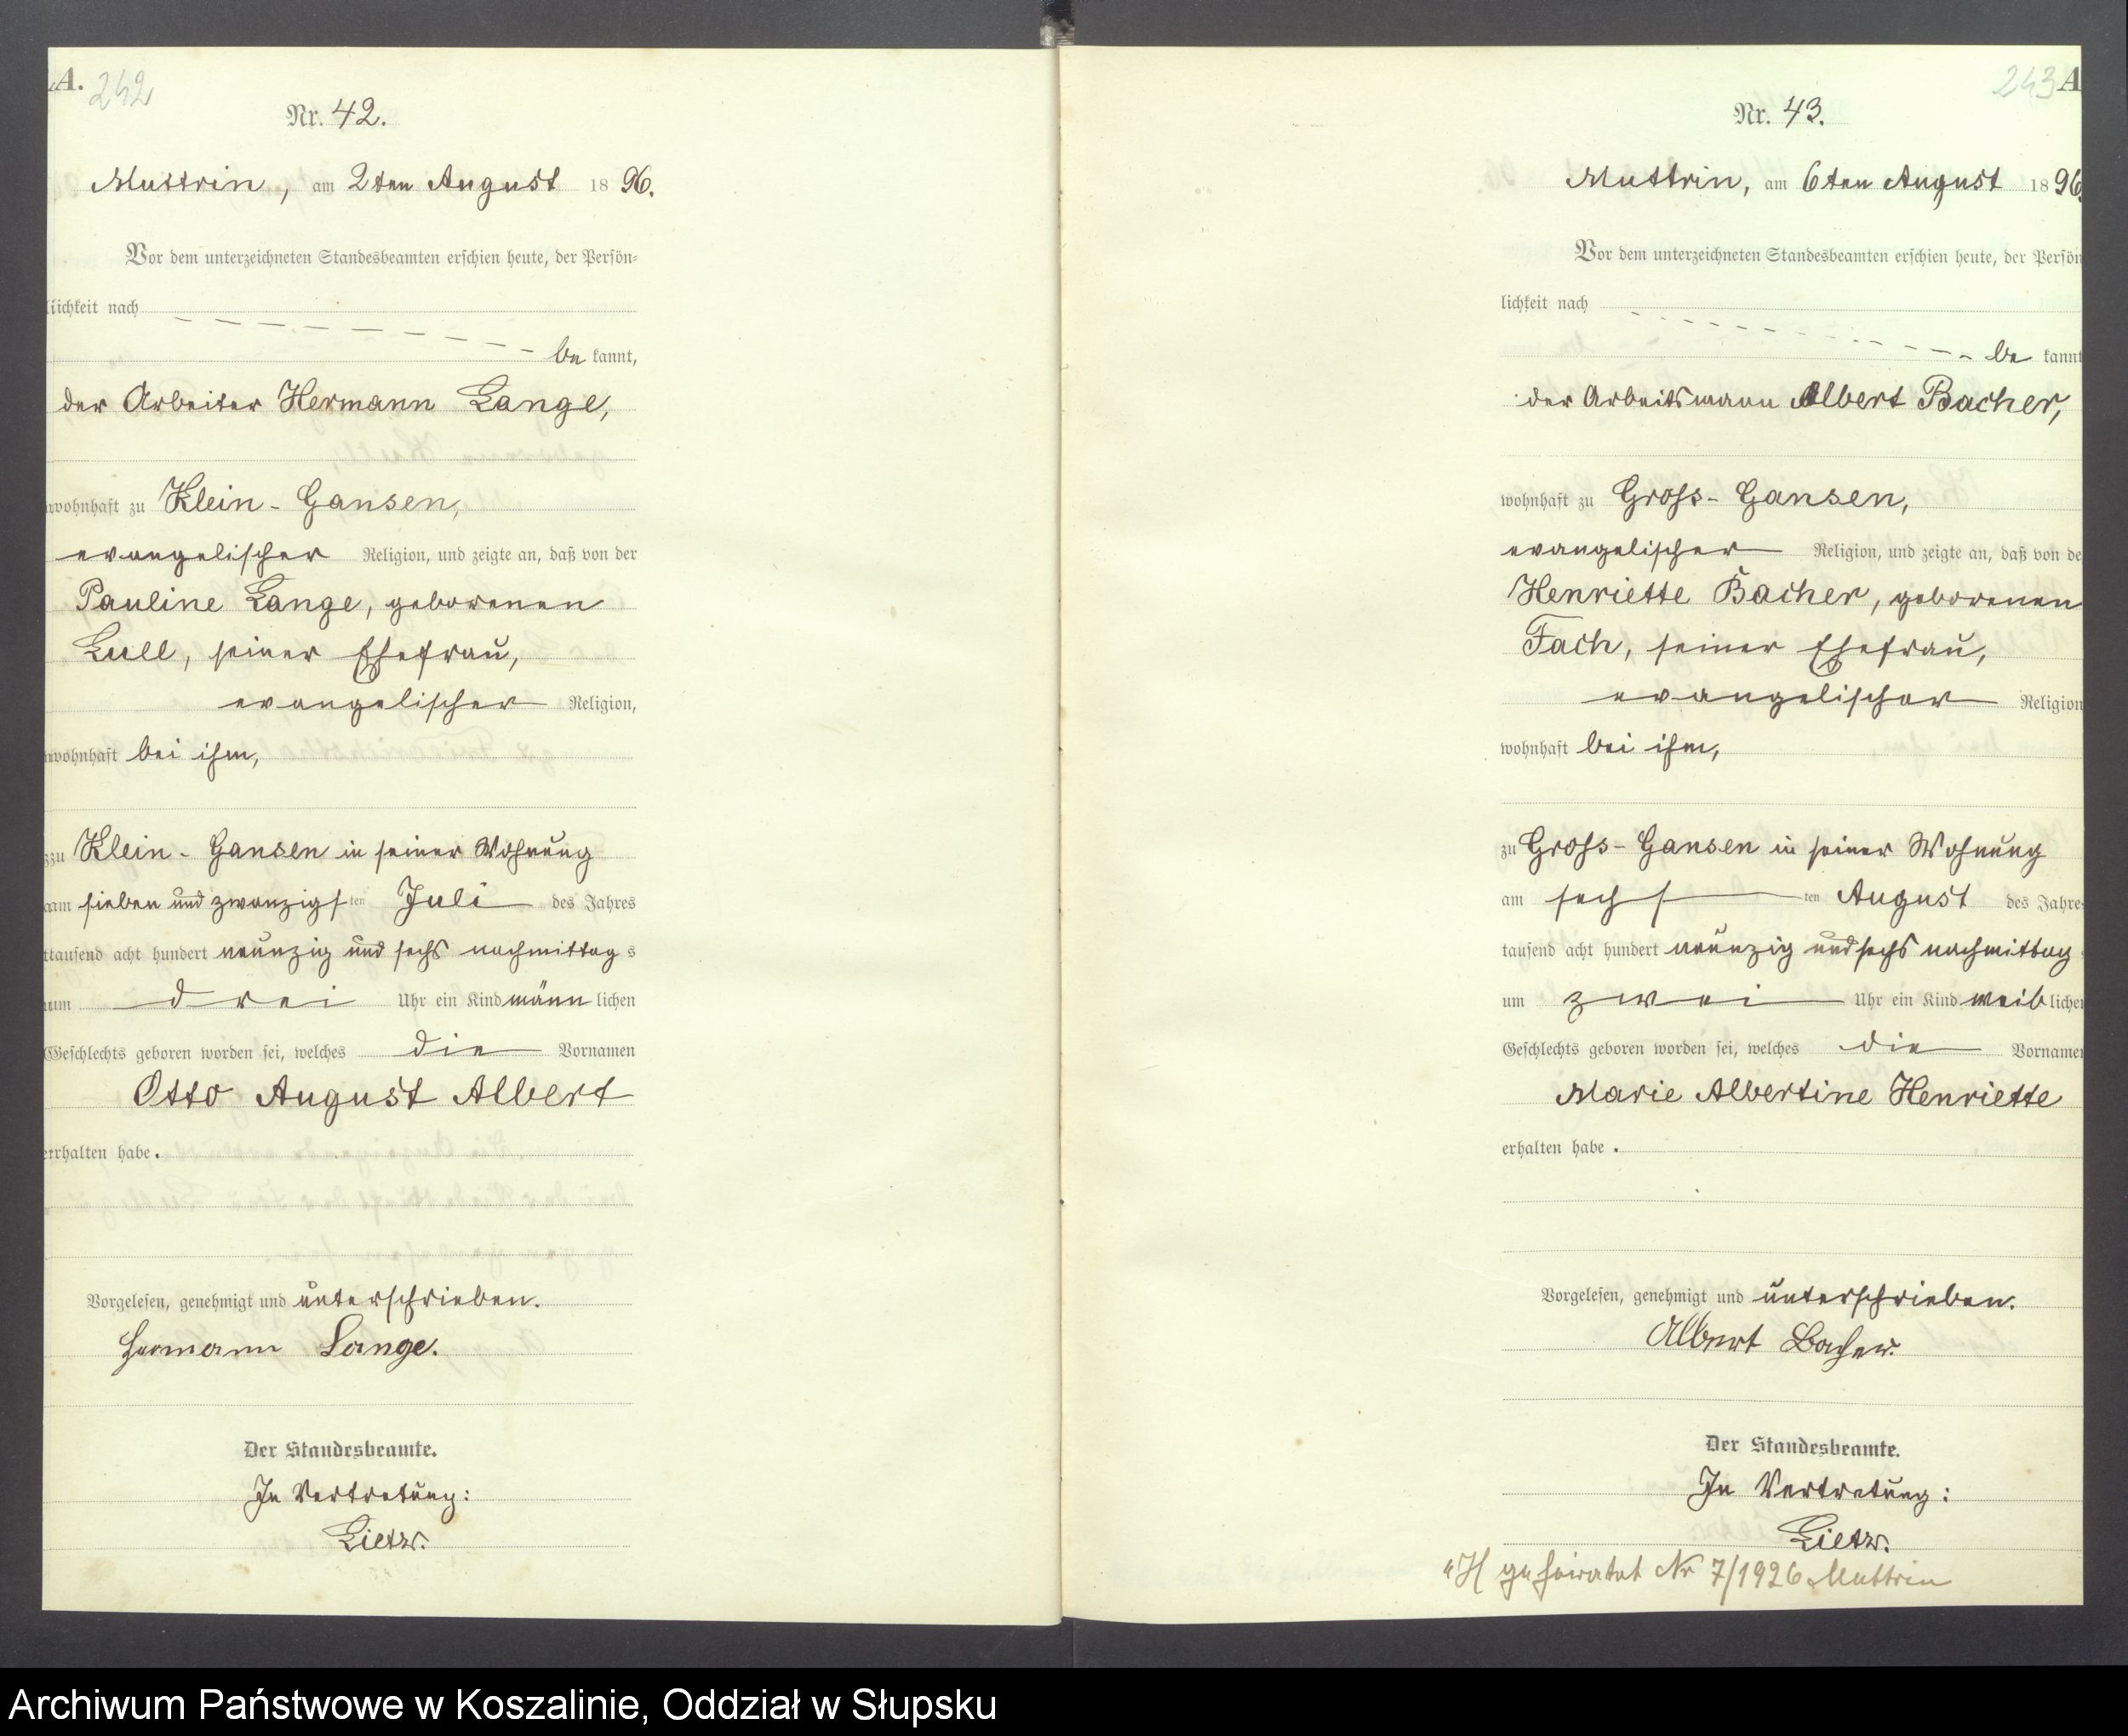 A. 242
Nr. 42.
Muttrin, am 2ten August 1896.
Vor dem unterzeichneten Standesbeamten erschien heute, der Persön-
lichkeit nach
be kannt,
der Arbeiter Hermann Lange,
wohnhaft zu Klein-Gansen,
evangelischer Religion, und zeigte an, daß von der
Pauline Lange, geborenen
Lull, seiner Ehefrau,
evangelischer Religion,
wohnhaft bei ihm,
zu Klein-Gansen in seiner Wohnung
am sieben und zwanzigsten Juli des Jahres
tausend acht hundert neunzig und sechs nachmittags
um drei Uhr ein Kind männlichen
Geschlechts geboren worden sei, welches die Vornamen
Otto August Albert
erhalten habe.
Vorgelesen, genehmigt und unterschrieben.
Hermann Lange.
Der Standesbeamte.
In Vertretung:
Lietz.
243 A
Nr. 43.
Muttrin, am 6ten August 1896.
Vor dem unterzeichneten Standesbeamten erschien heute, der Persön
lichkeit nach
be kannt
der Arbeitsmann Albert Bacher,
wohnhaft zu Gross-Gansen,
evangelischer Religion, und zeigte an, daß von de
Henriette Bacher, geborenen
Fach, seiner Ehefrau,
evangelischer Religion
wohnhaft bei ihm,
zu Gross-Gansen in seiner Wohnung
am sechsten August des Jahre
tausend acht hundert neunzig und sechs nachmittag
um zwei Uhr ein Kind weibliche
Geschlechts geboren worden sei, welches die Vorname
Marie Albertine Henriette
erhalten habe.
Vorgelesen, genehmigt und unterschrieben.
Albert Bacher.
Der Standesbeamte.
In Vertretung:
Lietz.
geheiratet Nr 7/1926 Muttrin
Archiwum Państwowe w Koszalinie, Oddział w Słupsku